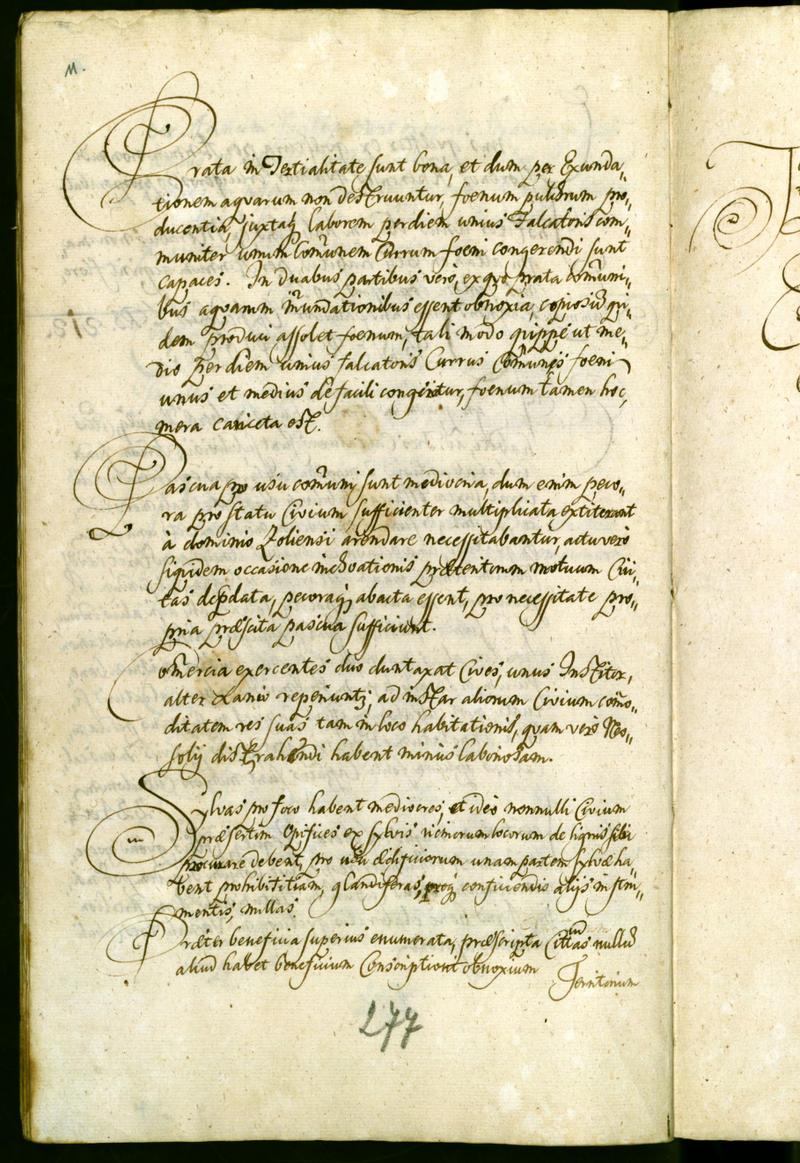 M.
Prata in Tertialitate sunt bona, et dum per Exunda„
tionem aquarum non destruuntur, foenum pulchrum pro„
ducentia, juxtaq laborem per diem unius Falcatoris com„
muniter unum Com̄unem Currum foeni congerendi sunt
capaces. In duabus partibus verò, ex quo prata com̄uni„
bus aquarum inundationibus essent obnoxia, copiosū qui„
dem produci assolet foenum, tali modo quippe ut me„
dio per diem unius falcatoris Currus Com̄unis foeni
unus et medius de facili congeratur, foenum tamen hoc,
mera cariceta est.
Pascua pro usu com̄uni sunt mediocria, dum enim peco„
ra pro statu Civium sufficienter multiplicata extiterant
à dominio Zoliensi arendare necessitabantur, actu verò
siquidem occasione inchoationis prætentorum motuum Civi„
tas depdata, pecoraq abacta essent, pro necessitate pro„
pria præscita pascua sufficiunt.
Com̄ercia exercentes duo duntaxat Cives, unus Institor,
alter Lanio reperiuntq; ad instar aliorum Civium com̄o„
ditatem res suas tam in loco habitationis, quam verò Neo„
solij distrahendi habent minus laboriosam.
Sylvas pro foco habent mediocres, et ideo nonnulli Civium
præsertim Opifices ex sylvis vicinorum locorum de lignis sibi
procurare debent, pro usu ædificiorum unam partem sylvæ ha„
bent prohibititiam, glandiferas, proq conficiendis alijs instru„
mentis, nullas.
Præter beneficia superius enumerata, præscripta Cittas nullū
aliud habet beneficium Conscriptioni obnoxium
Territorium
277